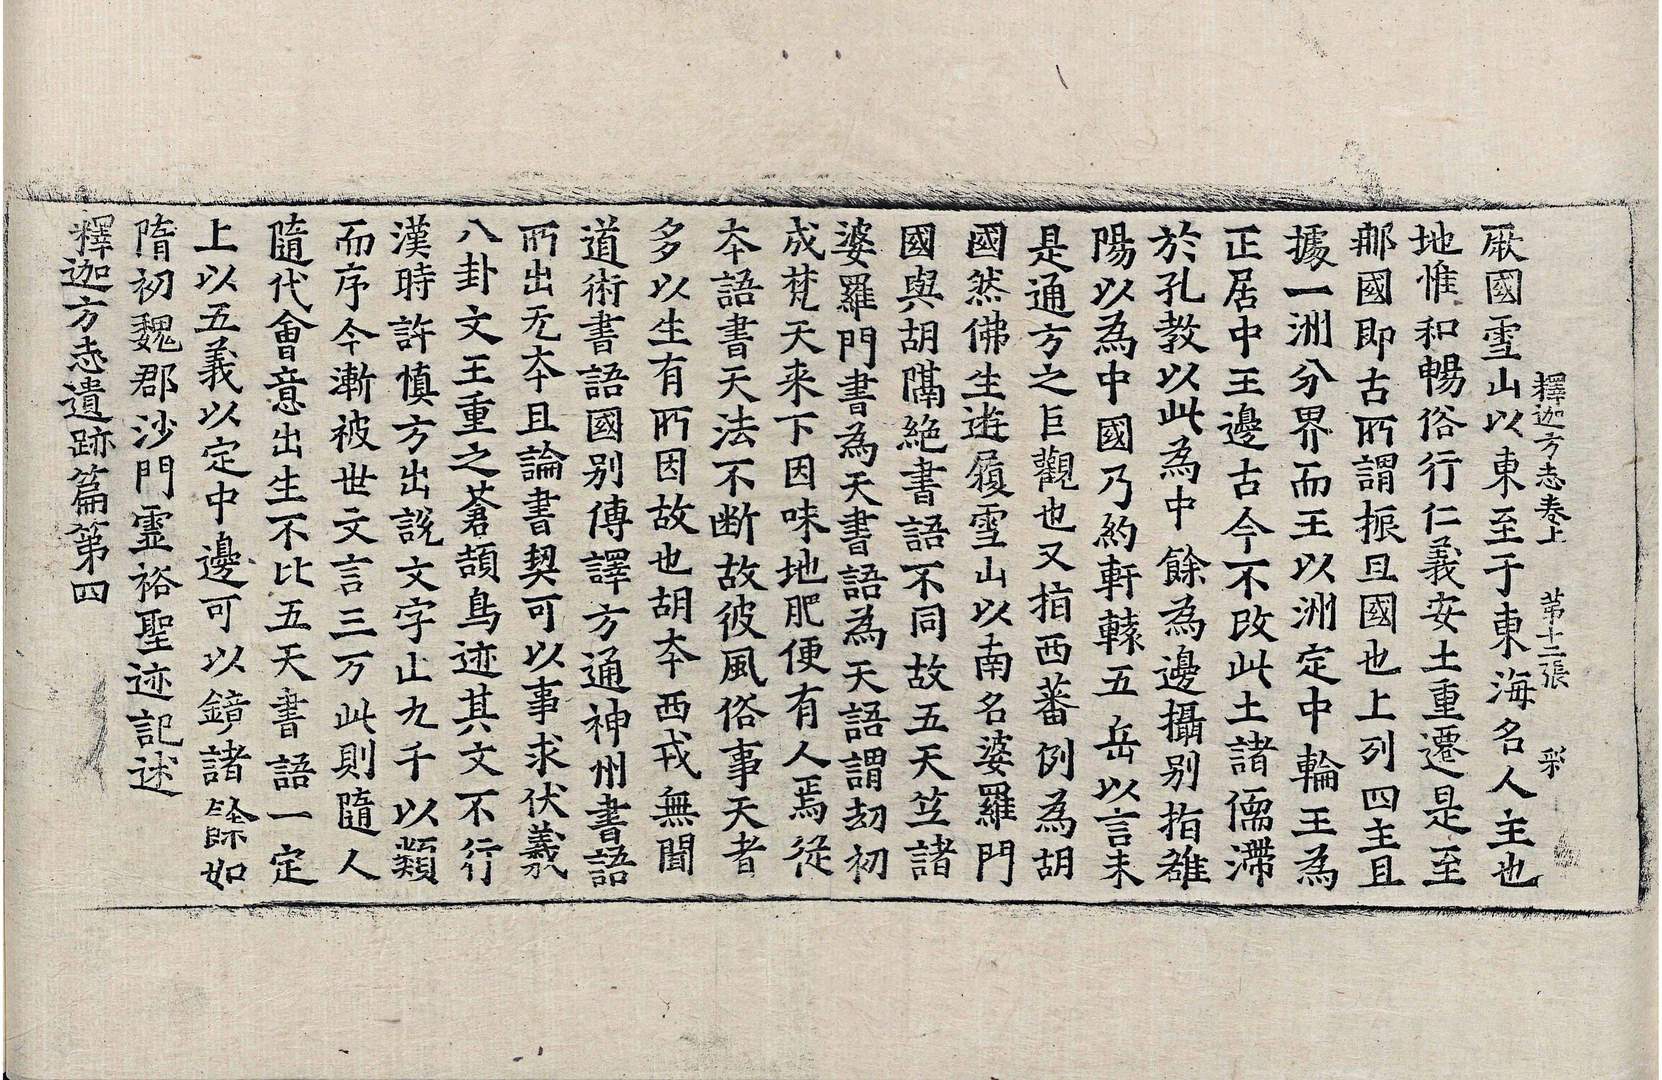 釋迦方志卷上 第十二張 采
厥國雪山以東至于東海名人主也
地惟和暢俗行仁義安土重遷是至
那國即古所謂振旦國也上列四主且
據一洲分界而王以洲定中輪王為
正居中王邊古今不改此土諸儒滯
於孔教以此為中餘為邊攝别指雒
陽以為中國乃約軒轅五岳以言未
是通方之巨觀也又指西蕃例為胡
國然佛生遊履雪山以南名婆羅門
國與胡隔絶書語不同故五天笁諸
婆羅門書為天書語為天語謂刧初
成梵天来下因味地肥便有人焉從
夲語書天法不断故彼風俗事天者
多以生有所因故也胡夲西戎無聞
道術書語國别傳譯方通神州書語
所出无夲且論書契可以事求伏羲
八卦文王重之蒼頡鳥迹其文不行
漢時許慎方出說文字止九千以類
而序今漸被世文言三万此則隨人
隨代會意出生不比五天書語一定
上以五義以定中邊可以鏡諸餘如
隋初魏郡沙門靈裕聖迹記述
釋迦方志遺跡篇第四